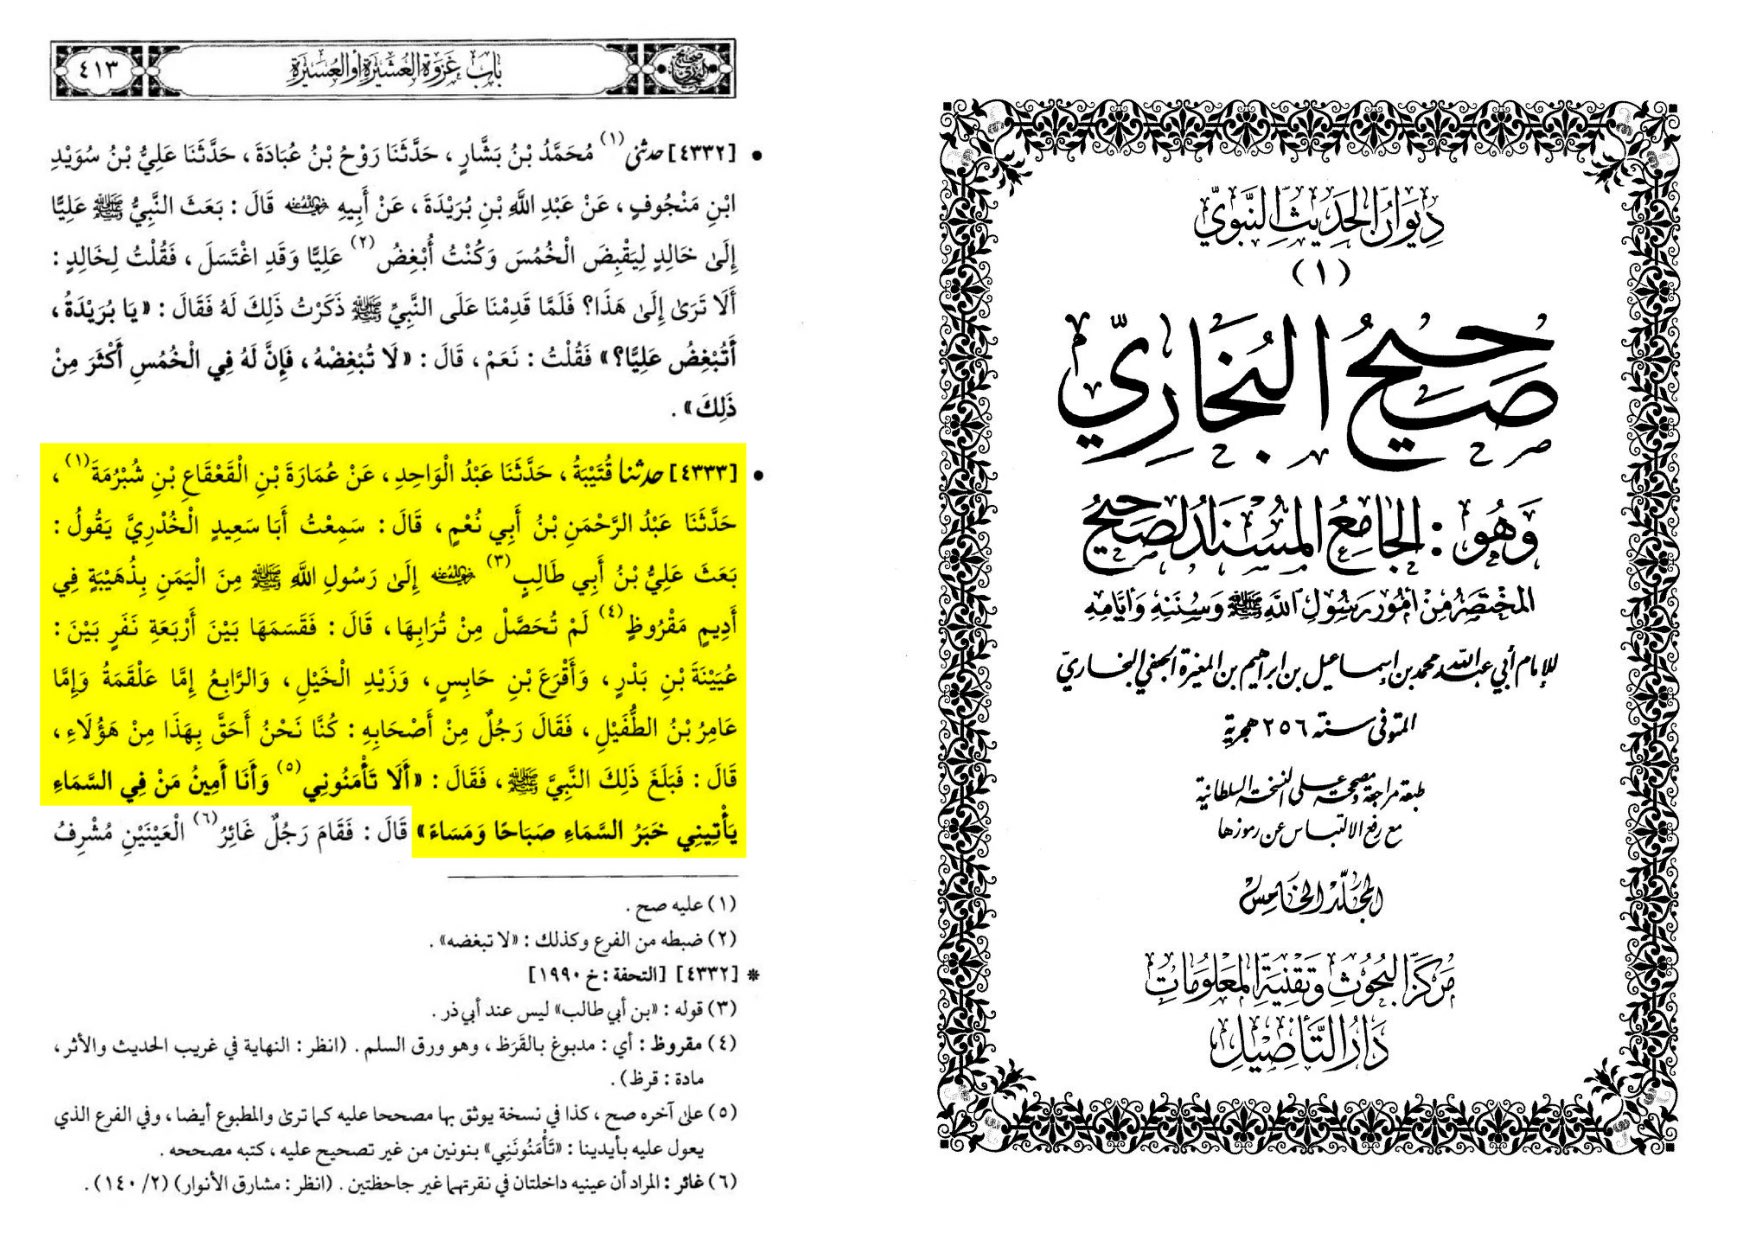 ديوان الحديث النبوي
(١)
صحيح البخاري
وهو : الجامع المسند الصحيح
المختصر من أمور رسول الله ﷺ وسننه وأيامه
للإمام أبي عبدالله محمد بن إسماعيل بن إبراهيم بن المغيرة الجعفي البخاري
المتوفى سنة ٢٥٦ هجرية
طبعة مراجعة ومصححة على النسخة السلطانية
مع رفع الالتباس عن رموزها
المجلد الخامس
مركز البحوث وتقنية المعلومات
دار التأصيل
باب غزوة العشيرة أو العسيرة
٤١٣
• [٤٣٣٢] حدثني (١) مُحَمَّدُ بْنُ بَشَّارٍ ، حَدَّثَنَا رَوْحُ بْنُ عُبَادَةَ ، حَدَّثَنَا عَلِيُّ بْنُ سُوَيْدِ
ابْنِ مَنْجُوفٍ ، عَنْ عَبْدِ اللَّهِ بْنِ بُرَيْدَةَ ، عَنْ أَبِيهِ رضي الله عنه قَالَ : بَعَثَ النَّبِيُّ ﷺ عَلِيًّا
إِلَىٰ خَالِدٍ لِيَقْبِضَ الْخُمُسَ وَكُنْتُ أُبْغِضُ (٢) عَلِيًّا وَقَدِ اغْتَسَلَ ، فَقُلْتُ لِخَالِدٍ :
أَلَا تَرَىٰ إِلَىٰ هَذَا؟ فَلَمَّا قَدِمْنَا عَلَى النَّبِيِّ ﷺ ذَكَرْتُ ذَلِكَ لَهُ فَقَالَ : «يَا بُرَيْدَةُ ،
أَتُبْغِضُ عَلِيًّا؟» فَقُلْتُ : نَعَمْ ، قَالَ : «لَا تُبْغِضْهُ ، فَإِنَّ لَهُ فِي الْخُمُسِ أَكْثَرَ مِنْ
ذَلِكَ» .
• [٤٣٣٣] حدثنا قُتَيْبَةُ ، حَدَّثَنَا عَبْدُ الْوَاحِدِ ، عَنْ عُمَارَةَ بْنِ الْقَعْقَاعِ بْنِ شُبْرُمَةَ (١) ،
حَدَّثَنَا عَبْدُ الرَّحْمَنِ بْنُ أَبِي نُعْمٍ ، قَالَ : سَمِعْتُ أَبَا سَعِيدٍ الْخُدْرِيَّ يَقُولُ :
بَعَثَ عَلِيُّ بْنُ أَبِي طَالِبٍ (٣) رضي الله عنه إِلَىٰ رَسُولِ اللَّهِ ﷺ مِنَ الْيَمَنِ بِذُهَيْبَةٍ فِي
أَدِيمٍ مَقْرُوظٍ (٤) لَمْ تُحَصَّلْ مِنْ تُرَابِهَا ، قَالَ : فَقَسَمَهَا بَيْنَ أَرْبَعَةِ نَفَرٍ بَيْنَ :
عُيَيْنَةَ بْنِ بَدْرٍ ، وَأَقْرَعَ بْنِ حَابِسٍ ، وَزَيْدِ الْخَيْلِ ، وَالرَّابِعُ إِمَّا عَلْقَمَةُ وَإِمَّا
عَامِرُ بْنُ الطُّفَيْلِ ، فَقَالَ رَجُلٌ مِنْ أَصْحَابِهِ : كُنَّا نَحْنُ أَحَقَّ بِهَذَا مِنْ هَؤُلَاءِ ،
قَالَ : فَبَلَغَ ذَلِكَ النَّبِيَّ ﷺ ، فَقَالَ : «أَلَا تَأْمَنُونِي (٥) وَأَنَا أَمِينُ مَنْ فِي السَّمَاءِ
يَأْتِينِي خَبَرُ السَّمَاءِ صَبَاحًا وَمَسَاءً» قَالَ : فَقَامَ رَجُلٌ غَائِرُ (٦) الْعَيْنَيْنِ مُشْرِفُ
(١) عليه صح .
(٢) ضبطه من الفرع وكذلك : «لا تبغضه» .
* [٤٣٣٢] [التحفة : خ ١٩٩٠]
(٣) قوله : «بن أبي طالب» ليس عند أبي ذر .
(٤) مقروظ : أي : مدبوغ بالقَرَظ ، وهو ورق السلم . (انظر : النهاية في غريب الحديث والأثر ،
مادة : قرظ) .
(٥) على آخره صح ، كذا في نسخة يوثق بها مصححا عليه كما ترىٰ والمطبوع أيضا ، وفي الفرع الذي
يعول عليه بأيدينا : «تَأْمَنُونَنِي» بنونين من غير تصحيح عليه ، كتبه مصححه .
(٦) غائر : المراد أن عينيه داخلتان في نقرتهما غير جاحظتين . (انظر : مشارق الأنوار) (٢/ ١٤٠) .